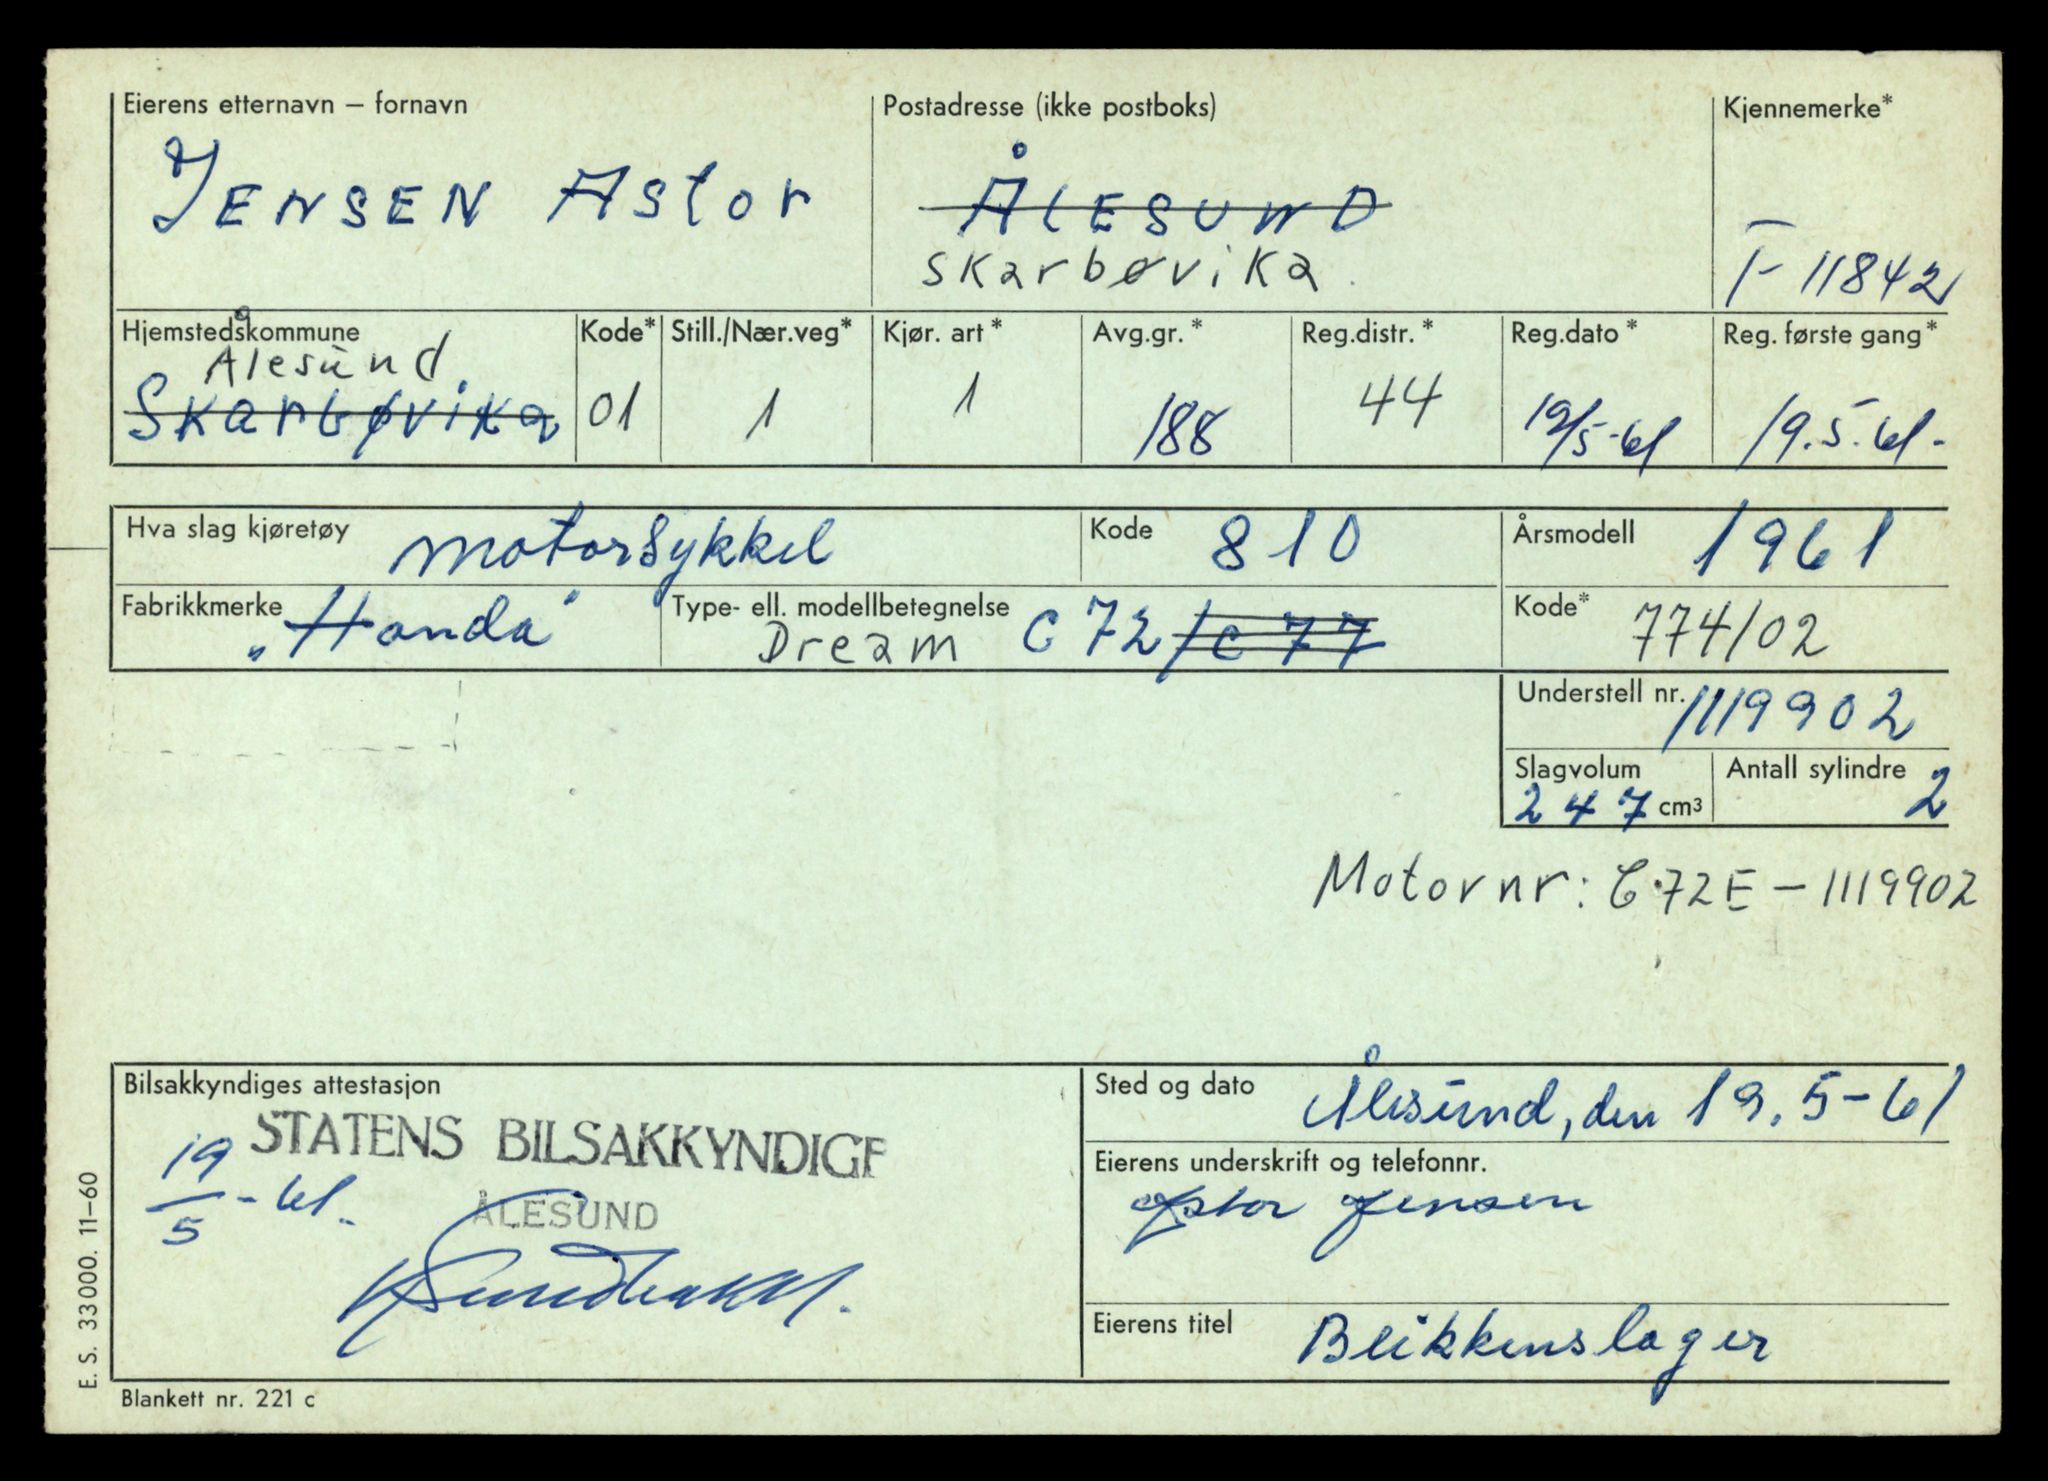 Eierens etternavn – fornavn
JENSEN Astor
Postadresse (ikke postboks)
ÅLESUND
Skarbøvika.
Kjennemerke*
T-11842
Hjemstedskommune
Ålesund
Skarbøvika
Kode*
01
Still./Nær.veg*
1
Kjør. art*
1
Avg.gr.*
188
Reg.distr.*
44
Reg.dato*
19/5-61
Reg. første gang*
19.5.61.
Hva slag kjøretøy
motorsykkel
Kode
810
Årsmodell
1961
Fabrikkmerke
„Honda"
Type- ell. modellbetegnelse
Dream C 72/C 77
Kode*
774/02
Understell nr.
1119902
Slagvolum
247 cm³
Antall sylindre
2
Motornr: C.72E – 1119902
Bilsakkyndiges attestasjon
STATENS BILSAKKYNDIGE
ÅLESUND
19/5 - 61.
Sted og dato
Ålesund, den 19.5-61
Eierens underskrift og telefonnr.
Astor Jensen
Eierens titel
Blikkenslager
E. S. 33000. 11–60
Blankett nr. 221 c